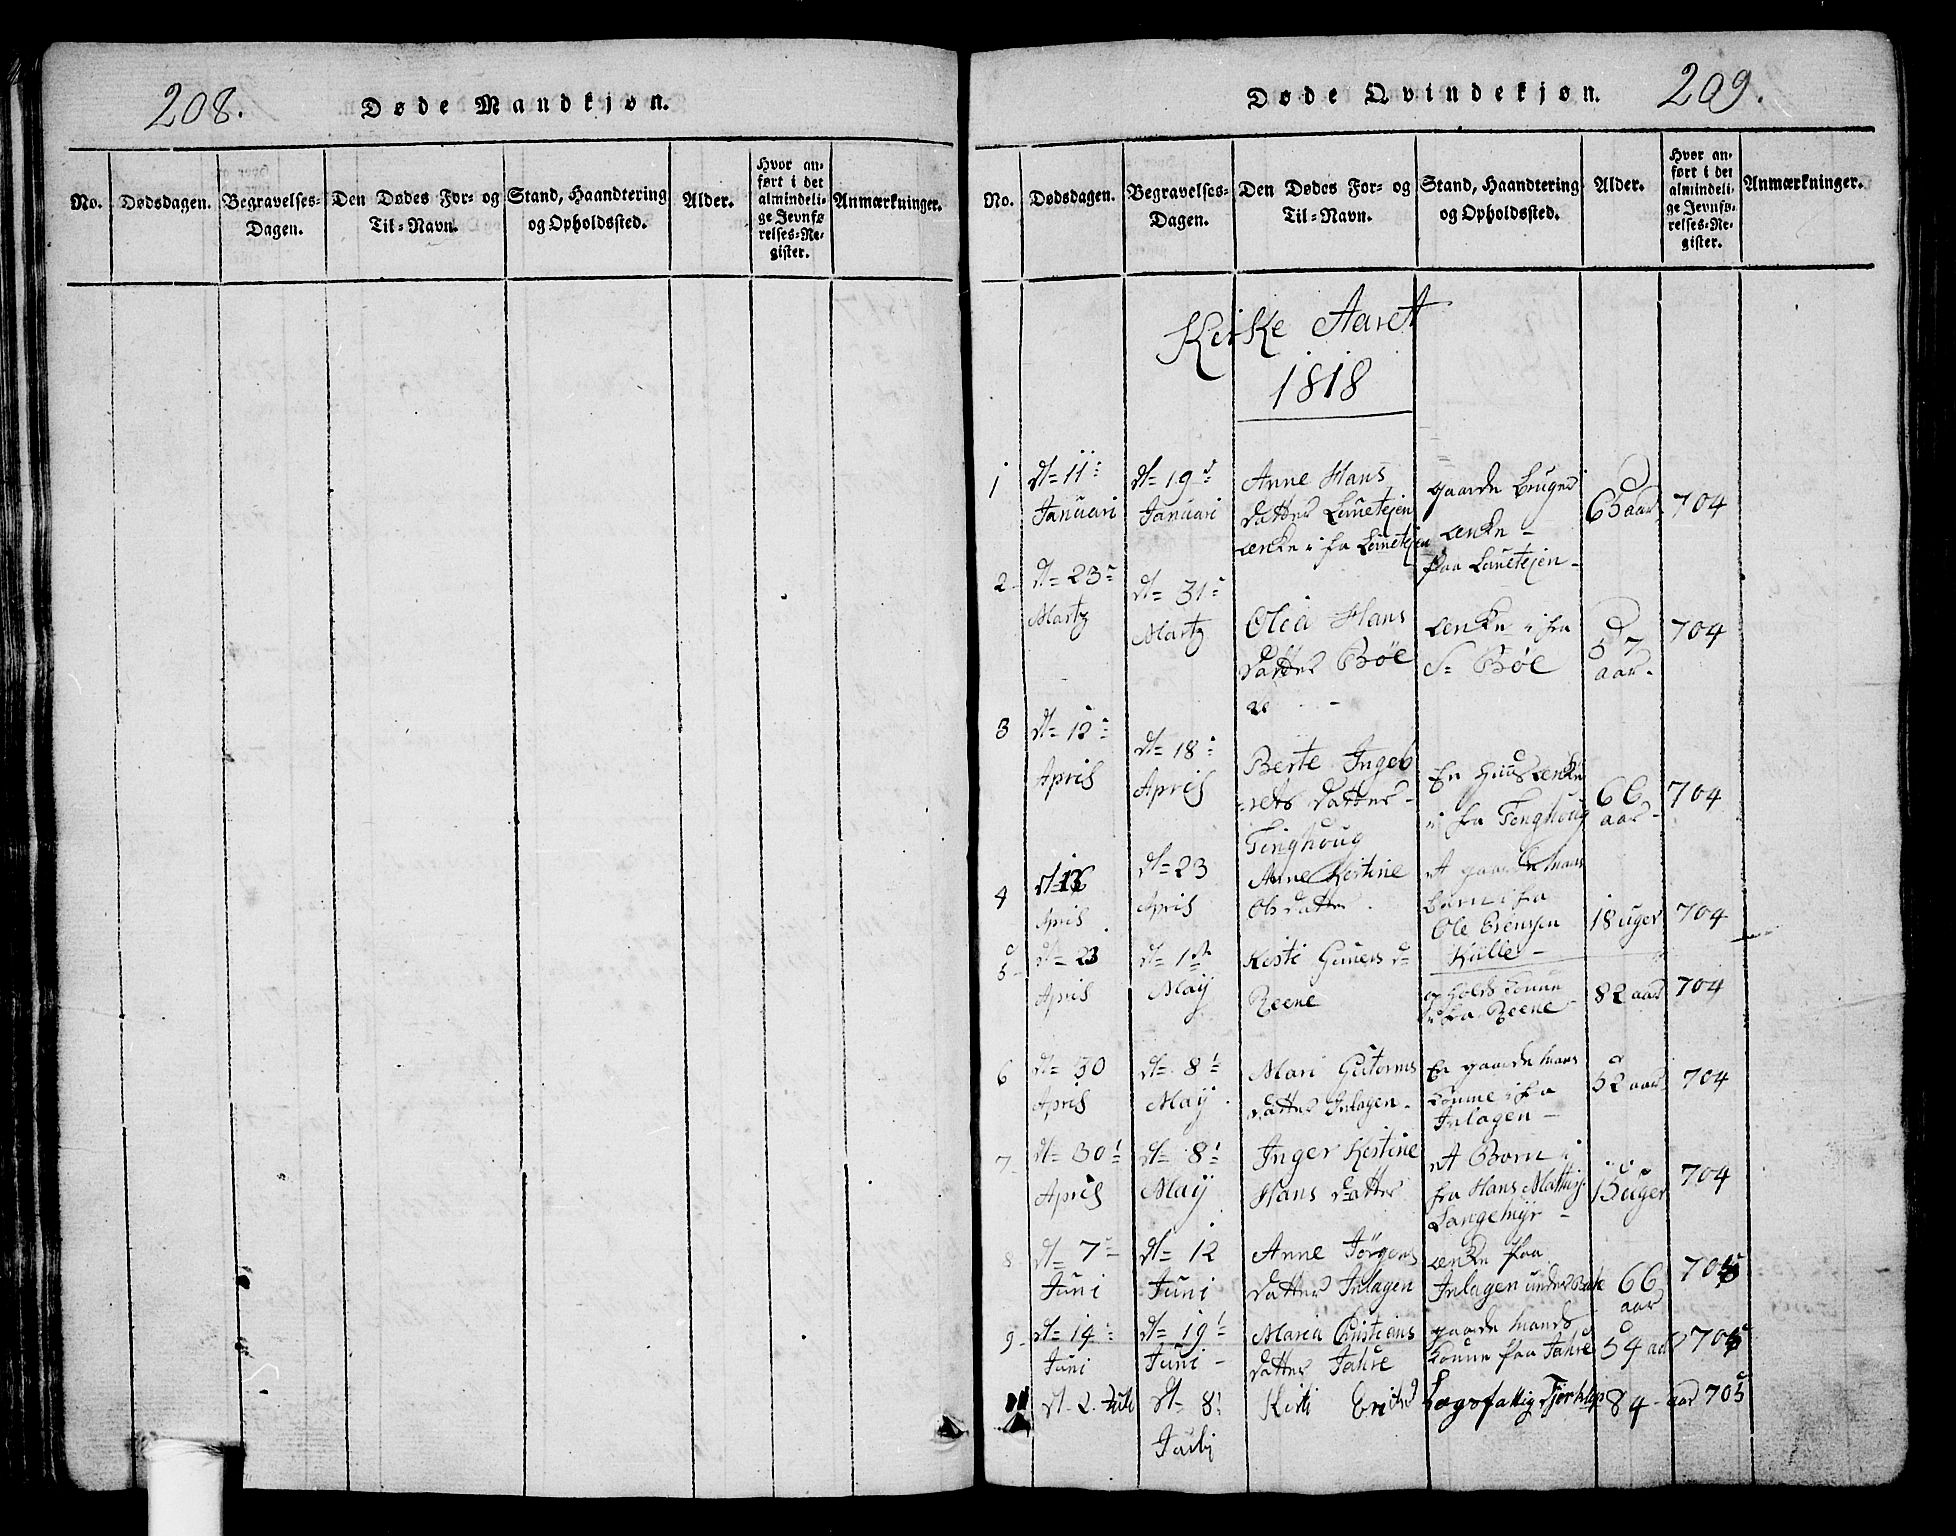 208.
Døde Mandkjøn.
No.
Dødsdagen.
Begravelses-
Dagen.
Den Dødes For- og
Til-Navn.
Stand, Haandtering
og Opholdssted.
Alder.
Hvor an-
ført i det
almindeli-
ge Jevnfø-
relses-Re-
gister.
Anmærkninger.
Døde Qvindekjøn.
209.
No.
Dødsdagen.
Begravelses-
Dagen.
Den Dødes For- og
Til-Navn.
Stand, Haandtering
og Opholdssted.
Alder.
Hvor an-
ført i det
almindeli-
ge Jevnfø-
relses-Re-
gister.
Anmærkninger.
Kirke Aaret
1818
1
d 11
Januari
d 19
Januari
Anne Hans
datter
enke i fra
gaarde bruger
enke
paa
65 aar
704
2
d 23
Martz
d 31
Martz
Olea Hans
datter Bøe
enke i fra
S Bøe
57
aar
704
3
d 12
April
d 18
April
Berte Ingeb
rets datter
Tinghoug
En huus enke
i fra Tinghoug
66
aar
704
4
April
d 23
April
Anne Kirstine
Ols datter
et gaarde mans
barn i fra
Ole
18 uger
704
5
d 23
April
d 1
Maij
Kirsti d
Reene
opholds konne
i fra Reene
82 aar
704
6
d 30
April
d 8
Maij
Mari Gutorms
datter Inlagen
En gaarde mans
konne i fra
Inlagen
52 aar
704
7
d 30
April
d 8
Maij
Inger Kirstine
Hans datter
et Born i
fra Hans
Langemyr
15 uger
704
8
d 7
Juni
d 12
Juni
Anne Jørgens
datter Inlagen
enke paa
Inlagen under
66
aar
705
9
d 14
Juni
d 19
Juni
Maria Christens
datter Jahre
gaarde mands
konne paa Jahre
54 aar
705
d 2 Juli
d 8
Julij
Kirsti
Lægsfattig
84 aar
705